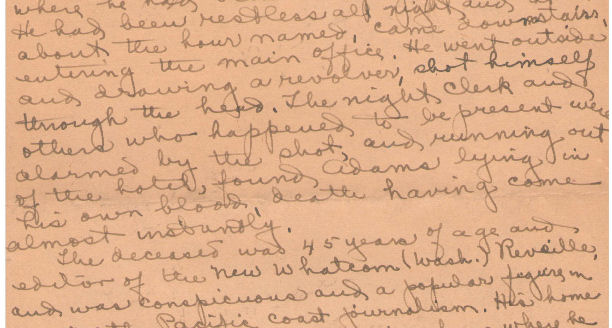 where he had
He had been restless all night and
about the hour named, came downstairs
entering the main office. He went outside
and drawing a revolver, shot himself
through the head. The night clerk and
others who happened to be present were
alarmed by the shot, and running out
of the hotel, found Adams lying in
his own blood, death having come
almost instantly.
The deceased was 45 years of age and
editor of the New Whatcom (Wash.) Reveille,
and was conspicuous and a popular figure in
Pacific coast journalism. His home
where he